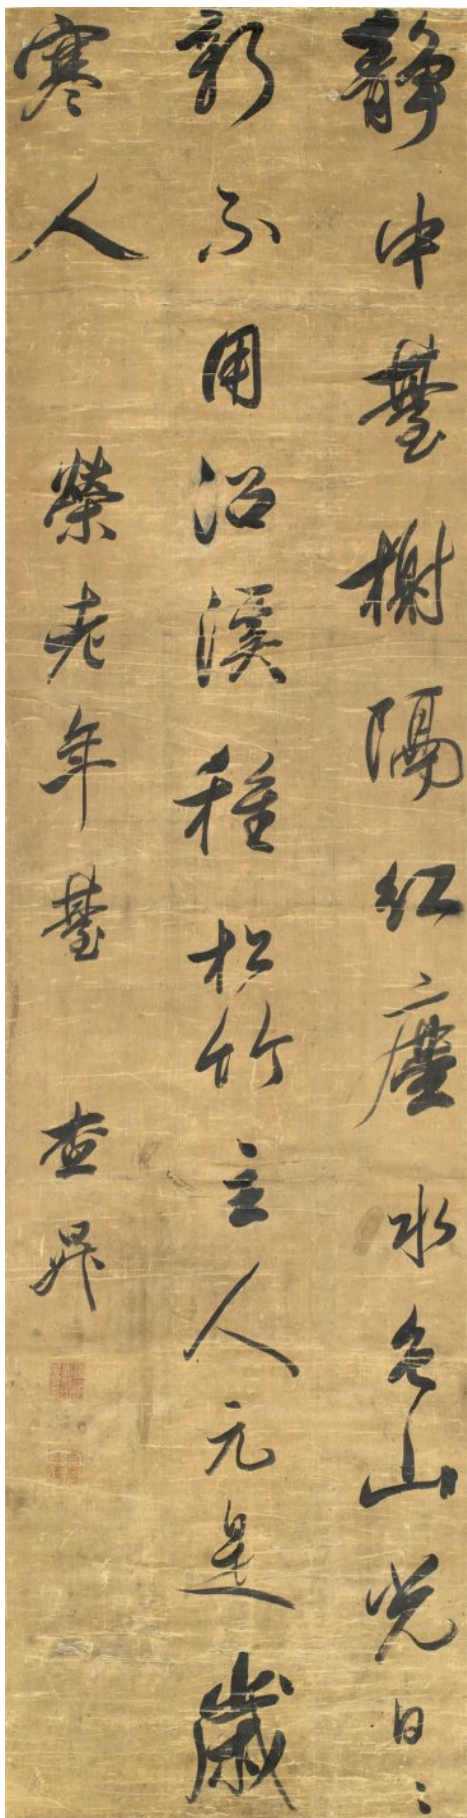 静中臺榭隔紅塵水色山光日〻
新不用沿溪種松竹主人元是歲
寒人
榮老年臺 查昇